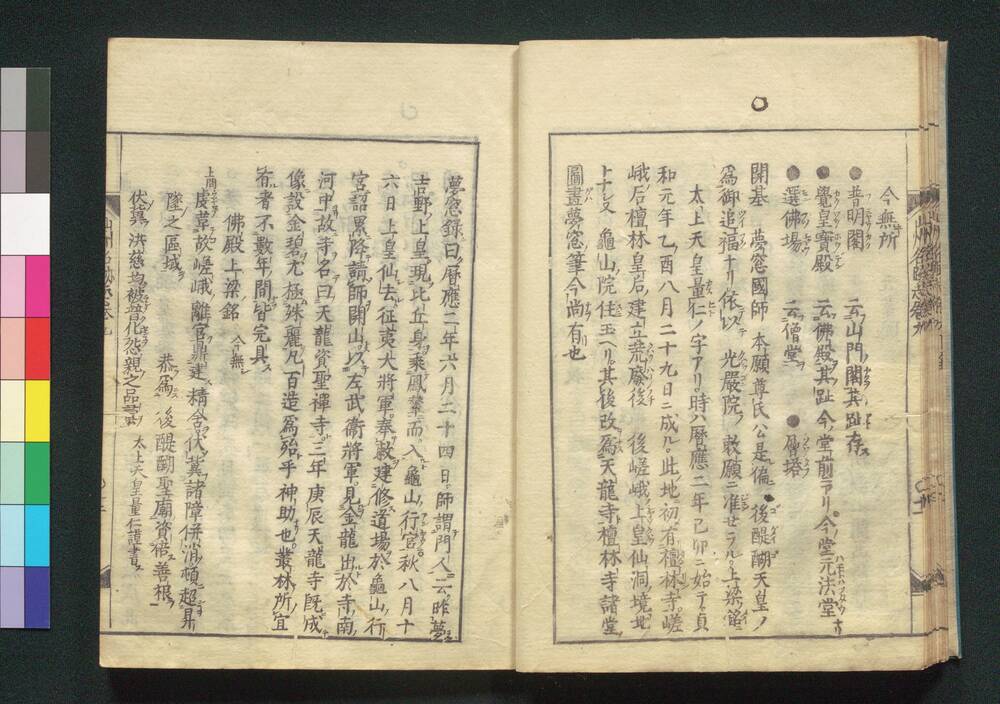 今無所
●普明閣　云山門ノ閣其趾存ス
●覺皇寶殿　云佛殿其趾今ノ堂前ニアリ今ノ堂元法堂ナリ
●選佛場　云僧堂　●層塔
開基　夢窓國師　本願尊氏公是偏ニ後醍醐天皇ノ
爲御追福ナリ依以　光嚴院ノ敕願ニ准セラル上梁銘
太上天皇量仁ノ字アリ時ハ暦應二年己卯ニ始テ貞
和元年乙酉八月二十九日ニ成ル此地初有檀林寺嵯
峨ノ后檀林皇后ノ建立荒廢後　後嵯峨ノ上皇仙洞ノ境地
トナレ又　龜山院住玉ヘリ其後改爲天龍寺檀林寺諸堂
圖畫夢窓筆今尚有也
夢窓録曰暦應二年六月二十四日師謂門人云昨夢
吉野上皇現比丘身乘鳳輦而入龜山行宮秋八月十
六日上皇仙去征夷大將軍奉敕建修道場於龜山行
宮詔累降請師開山以左武衞將軍見金龍出於寺南
河中故寺名曰天龍資聖禪寺三年庚辰天龍寺既成
像設金碧尤極殊麗凡百造爲殆乎神助也叢林所宜
有者不數年間皆完具
佛殿上梁銘　今無
上闕　虔革故嵯峨離宮鼎建精舍伏冀諸障併消頓超昇
墜之區域　恭爲　後醍醐聖廟資倍善根
伏冀　洪慈均被普化怨親之品彙　太上天皇量仁謹書